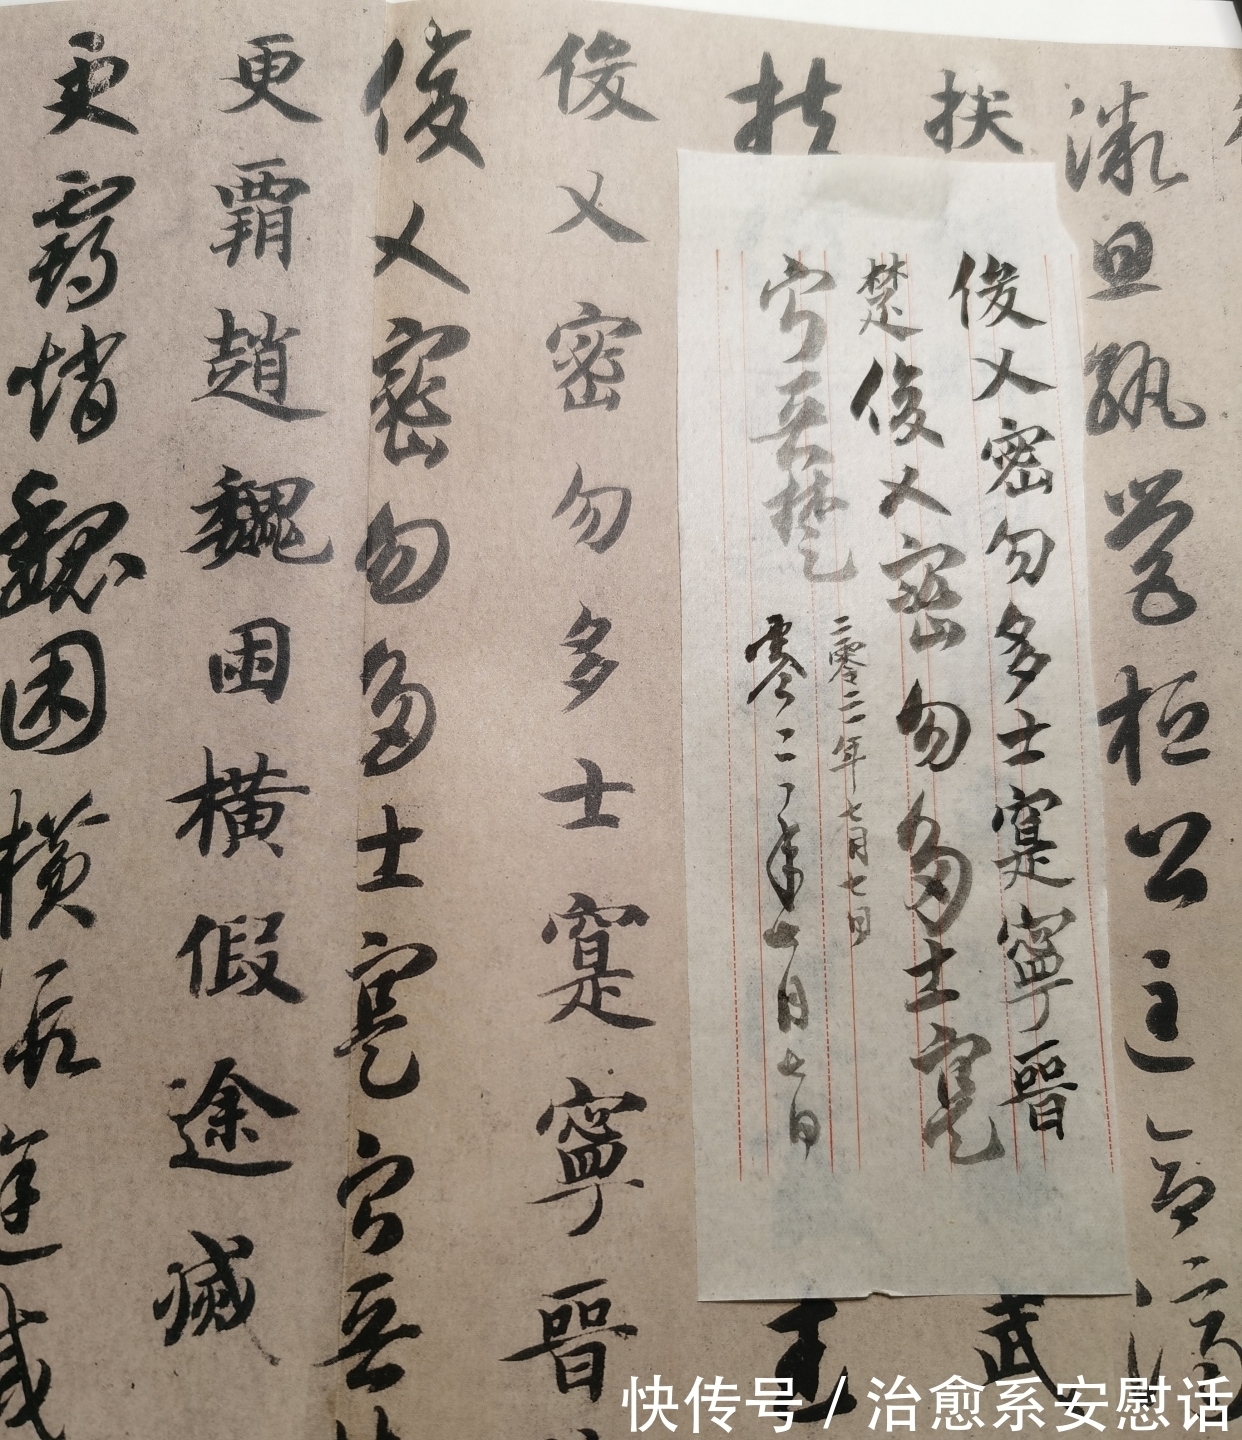 微旦孰營桓公匡合濟
扶
武
扶
俊乂密勿多士寔寧晉
楚俊乂密勿多士寔
二零二一年七月七日
寧晉楚
零二一年七月七日
俊乂密勿多士寔寧晉
俊乂密勿多士寔寧晉
更霸趙魏困橫假途滅
更霸趙魏困橫假途滅
快传号 / 治愈系安慰话